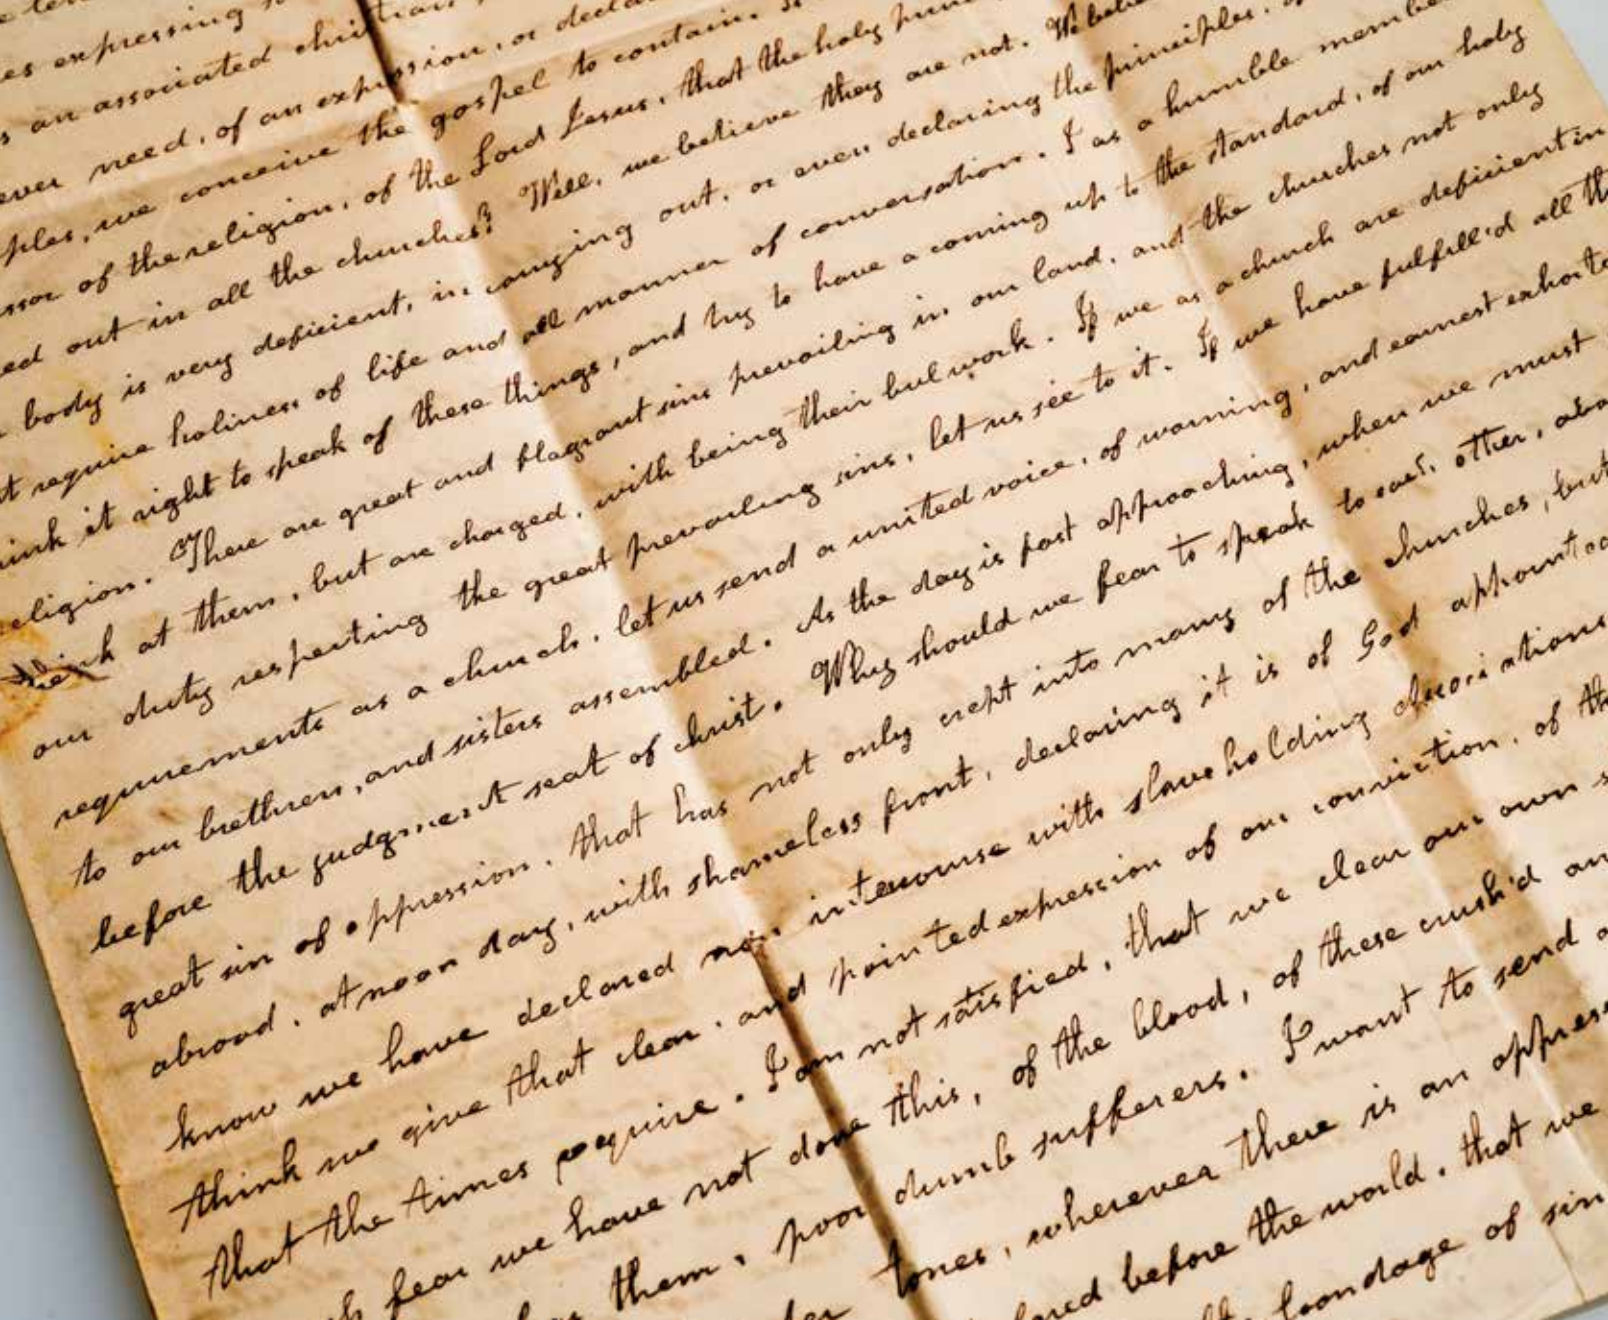 es expressing
s an associated christian
ever need, of an expression, or decla
ples, we conceive the gospel to contain.
ssor of the religion, of the Lord Jesus, that the holy
ed out in all the churches? Well, we believe they are not. We belie
body is very deficient, in carrying out, or even declaring the principles.
t require holiness of life and all manner of conversation. I as a humble membe
ink it right to speak of these things, and try to have a coming up to the standard, of our holy
religion. There are great and flagrant sins prevailing in our land, and the churches not only
wink at them, but are charged, with being their bulwork. If we as a church are deficient in
our duty respecting the great prevailing sins, let us see to it. If we have fulfill'd all th
requirements as a church. let us send a united voice, of warning, and earnest exhorta
to our brethren, and sisters assembled. As the day is fast approaching, when we must
before the judgment seat of christ. Why should we fear to speak to each other, abo
great sin of oppression. that has not only crept into many of the churches, but
abroad. at noon day, with shameless front, declaring it is of God appointed
know we have declared non intercourse with slaveholding associations
think we give that clear. and pointed expression of our conviction. of th
that the times require. I am not satisfied, that we clear our own s
fear we have not done this, of the blood, of these crush'd an
them, poor dumb sufferers. I want to send a
tones, wherever there is an oppres
before the world. that we
bondage of sin